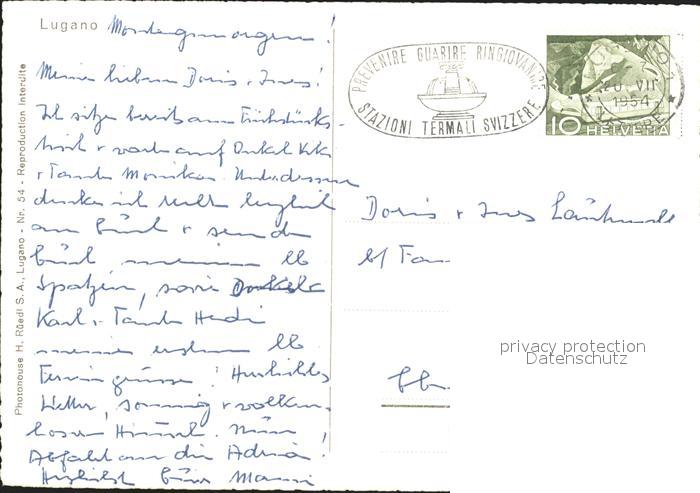 Lugano Montagmorgen!
Meine lieben Doris + Ines!
Ich sitze bereits am Frühstücks-
tisch + warte auf Onkel
+ Tante Monika. Unterdessen
denke ich recht herzlich
an Euch + sende
Euch meinen lb
Spatzen, sowie Onkel
Karl + Tante Hedi
meine ersten lb
Feriengrüsse! Herrliches
Wetter, sonnig + wolken-
loser Himmel. Nun
Abfahrt an die Adria!
Herzlichst Eure Mammi
Photohouse H. Rüedi S. A., Lugano - Nr. 54 - Reproduction Interdite
PREVENIRE GUARIRE RINGIOVANIRE
STAZIONI TERMALI SVIZZERE
20. VII
1954
10 HELVETIA
Doris + Ines
b/ Fam
privacy protection
Datenschutz